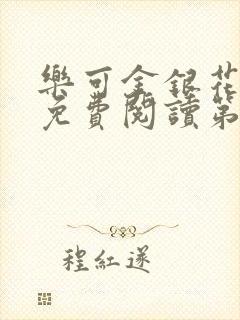 樂可金銀花
免費閱讀第
程紅遂